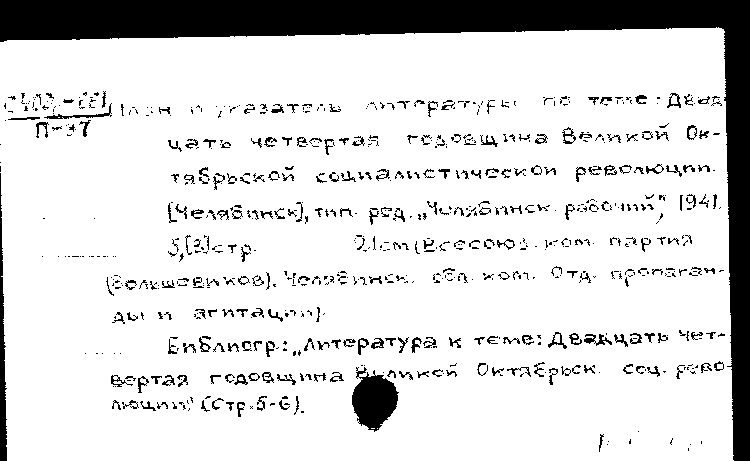 План и указатель литературы по теме: Двад-
П-37
цать четвертая годовщина Великой Ок-
тябрьской социалистической революции.
[Челябинск], тип. ред. „Челябинск. рабочий", 1941.
5,[3]стр. 21см (Всесоюз. ком. партия
(большевиков). Челябинск. обл. ком. Отд. пропаган-
ды и агитации).
Библиогр.: „Литература к теме: Двадцать чет-
вертая годовщина Великой Октябрьск. соц. рево-
люции" (Стр. 5-6).